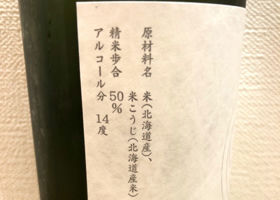 原材料名 米(北海道産)、
米こうじ(北海道産米)
精米歩合 50%
アルコール分 14度